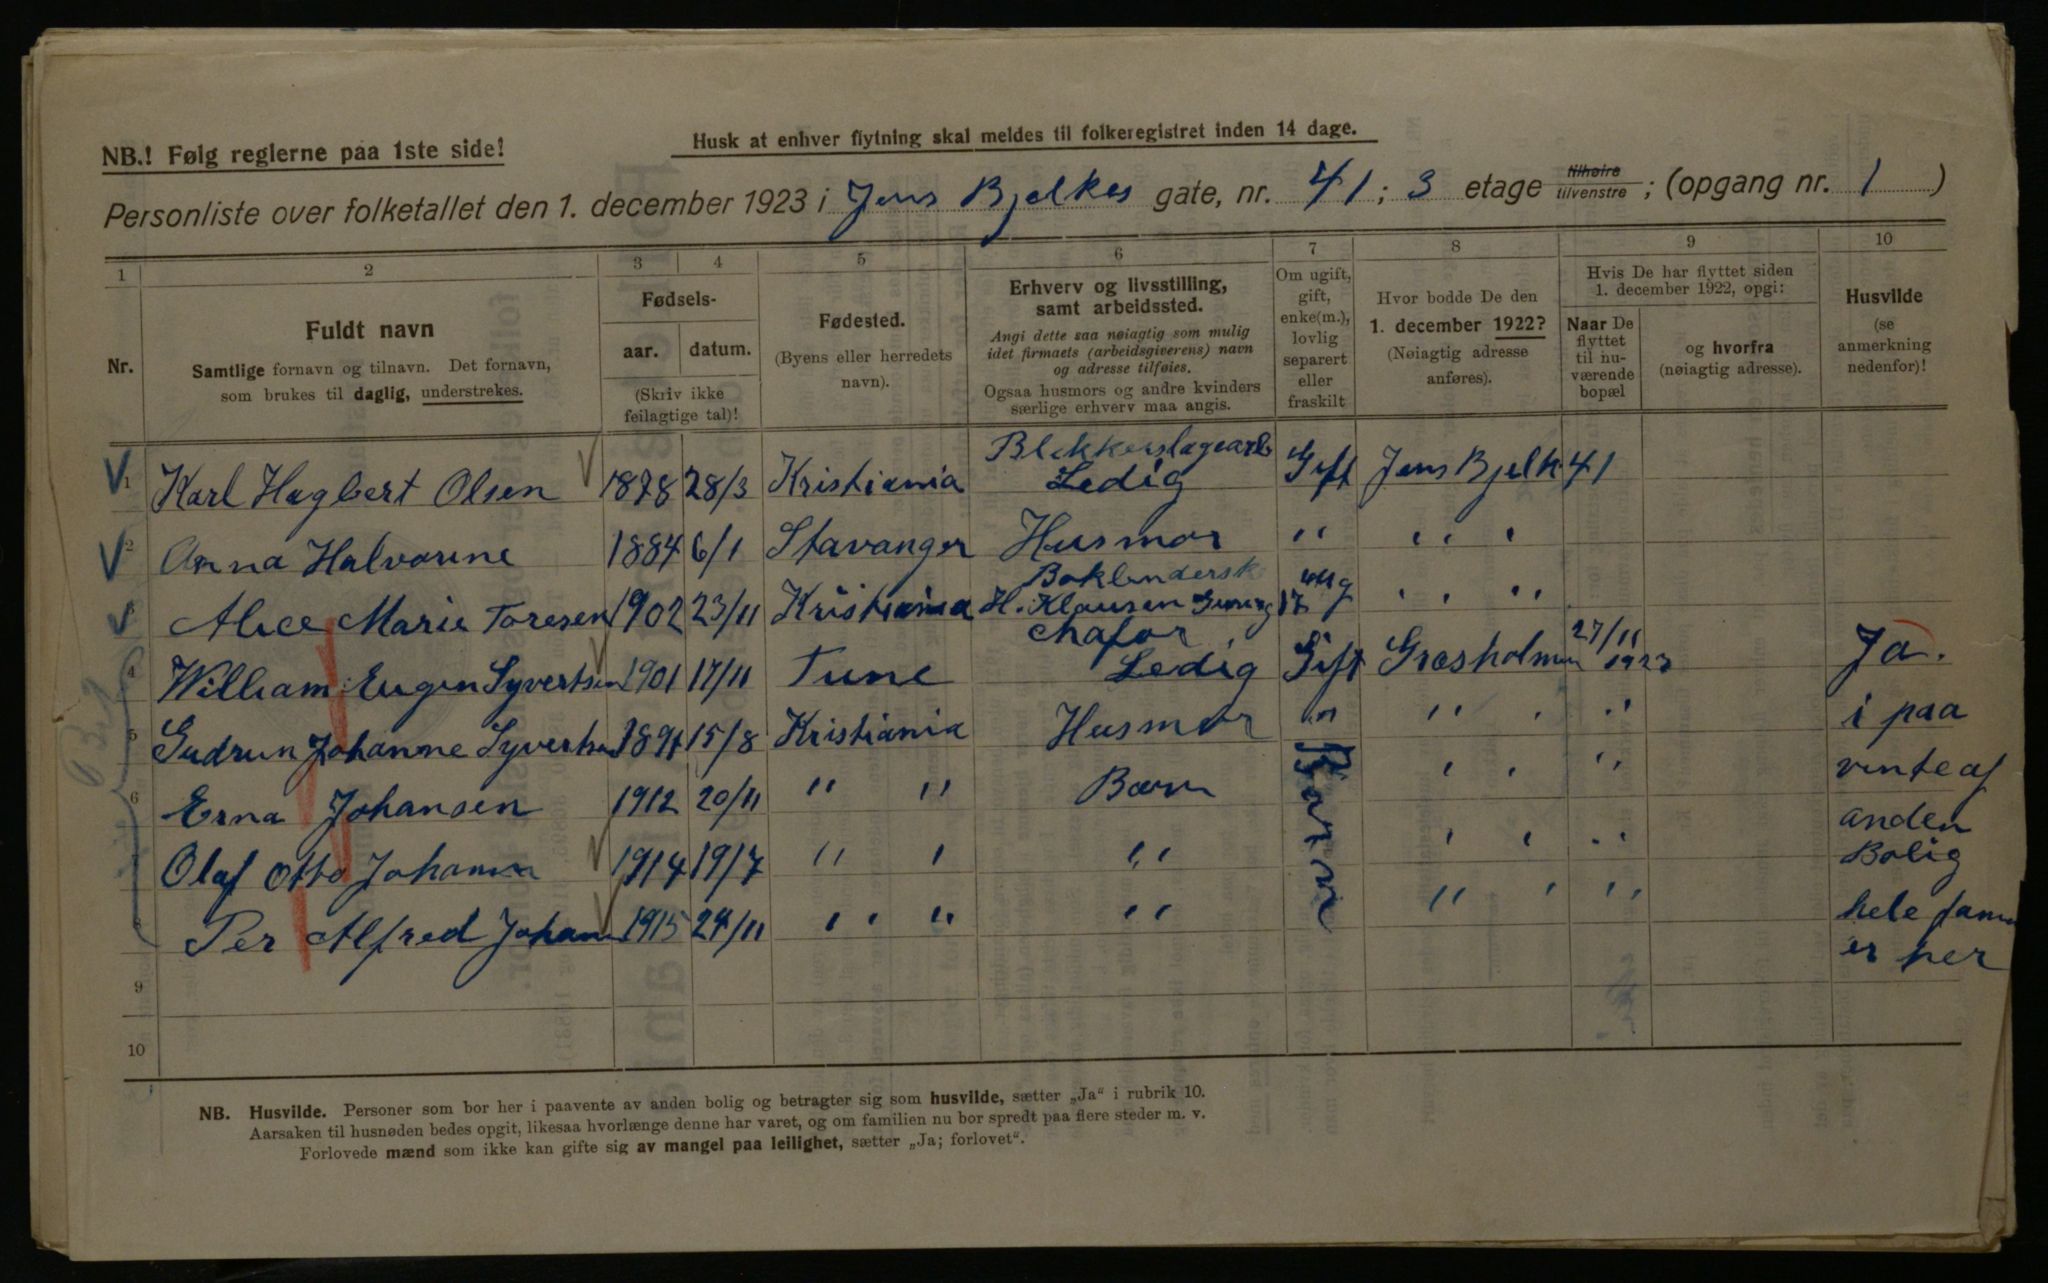 NB.! Følg reglerne paa 1ste side!
Husk at enhver flytning skal meldes til folkeregistret inden 14 dage.
Personliste over folketallet den 1. december 1923 i Jens Bjelkes gate, nr. 41; 3 etage tilhøire tilvenstre; (opgang nr. 1)
1 2 3 4 5 6 7 8 9 10
Nr.
Fuldt navn
Samtlige fornavn og tilnavn. Det fornavn,
som brukes til daglig, understrekes.
Fødsels-
aar. datum.
(Skriv ikke
feilagtige tal)!
Fødested.
(Byens eller herredets
navn).
Erhverv og livsstilling,
samt arbeidssted.
Angi dette saa nøiagtig som mulig
idet firmaets (arbeidsgiverens) navn
og adresse tilføies.
Ogsaa husmors og andre kvinders
særlige erhverv maa angis.
Om ugift,
gift,
enke(m.),
lovlig
separert
eller
fraskilt
Hvor bodde De den
1. december 1922?
(Nøiagtig adresse
anføres).
Hvis De har flyttet siden
1. december 1922, opgi:
Naar De
flyttet
til nu-
værende
bopæl
og hvorfra
(nøiagtig adresse).
Husvilde
(se
anmerkning
nedenfor)!
Blekkerslagearb
1 Karl Hagbert Olsen 1878 28/3 Kristiania Ledig Gift Jens Bjelk 41
2 Anna Halvorine 1884 6/1 Stavanger Husmor " " " "
Boklindersk
3 Alice Marie Toresen 1902 23/11 Kristiania H. Klausen 17 ug " " " "
Chafør 27/11
4 William Eugen Syvertsen 1901 17/11 Tune Ledig Gift Græsholmen 1923 Ja.
5 Gudrun Johanne Syvertsen 1891 15/8 Kristiania Husmor " " " " i paa
6 Erna Johansen 1912 20/11 " " Barn " " " vente af
anden
7 Olaf Otto Johansen 1914 19/7 " " " " " " Bolig
8 Per Alfred Johan 1915 24/11 " " " " " " " hele fam
er her
9
10
NB. Husvilde. Personer som bor her i paavente av anden bolig og betragter sig som husvilde, sætter „Ja“ i rubrik 10.
Aarsaken til husnøden bedes opgit, likesaa hvorlænge denne har varet, og om familien nu bor spredt paa flere steder m. v.
Forlovede mænd som ikke kan gifte sig av mangel paa leilighet, sætter „Ja; forlovet“.